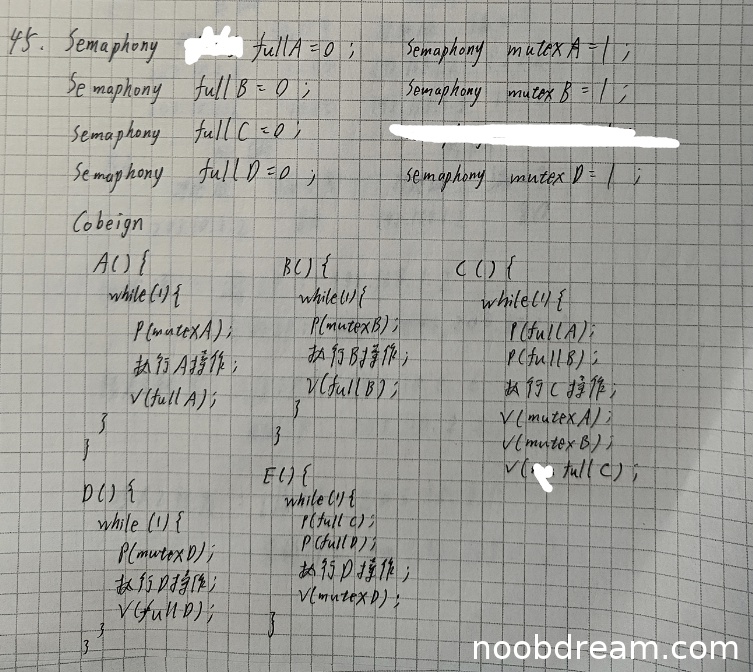 45. Semaphony fullA = 0 ; Semaphony mutexA = 1 ;
Semaphony fullB = 0 ; Semaphony mutexB = 1 ;
Semaphony fullC = 0 ;
Semaphony fullD = 0 ; Semaphony mutexD = 1 ;
Cobeign
A() { B() { C() {
while(1) { while(1) { while(1) {
P(mutexA); P(mutexB); P(fullA);
执行A操作; 执行B操作; P(fullB);
V(fullA); V(fullB); 执行C操作;
} } V(mutexA);
} } V(mutexB);
V( fullC);
D() { E() {
while(1) { while(1) {
P(mutexD); P(fullC);
执行D操作; P(fullD);
V(fullD); 执行D操作;
} V(mutexD);
} }
noobdream.com